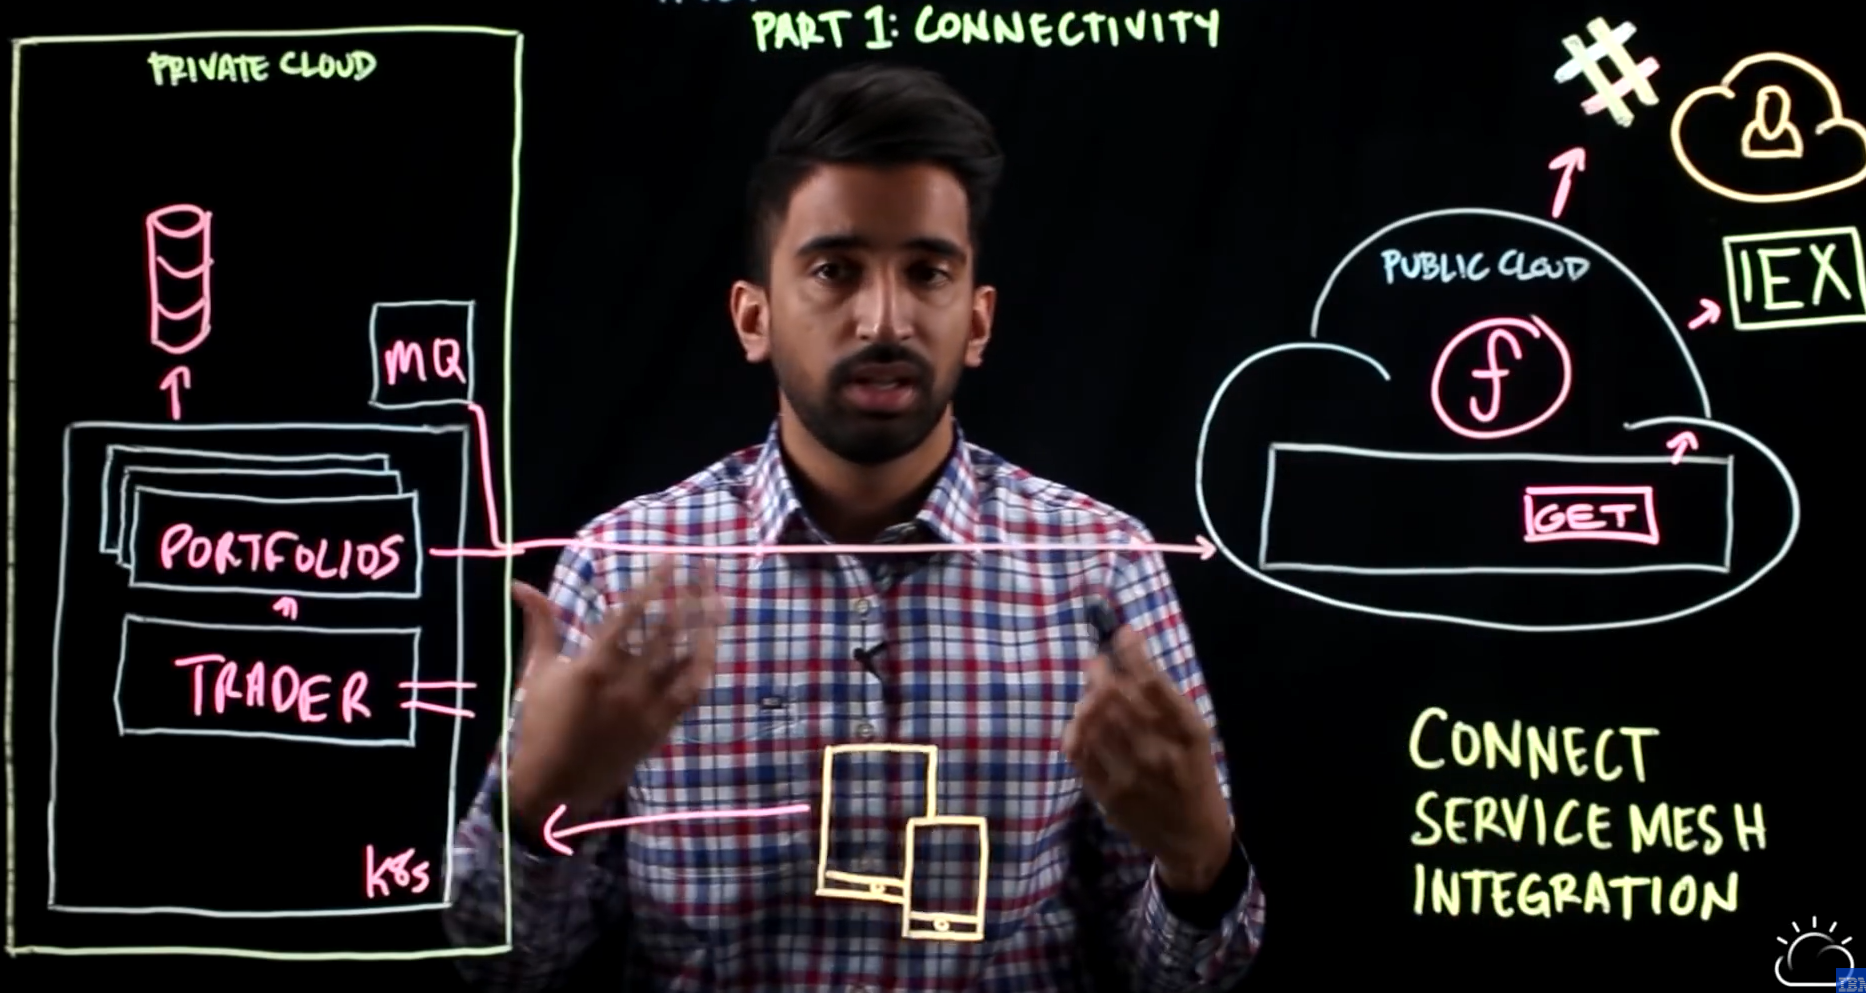 PART 1: CONNECTIVITY
PRIVATE CLOUD
MQ
PORTFOLIOS
TRADER
K8s
PUBLIC CLOUD
f
GET
IEX
CONNECT
SERVICE MESH
INTEGRATION
IBM